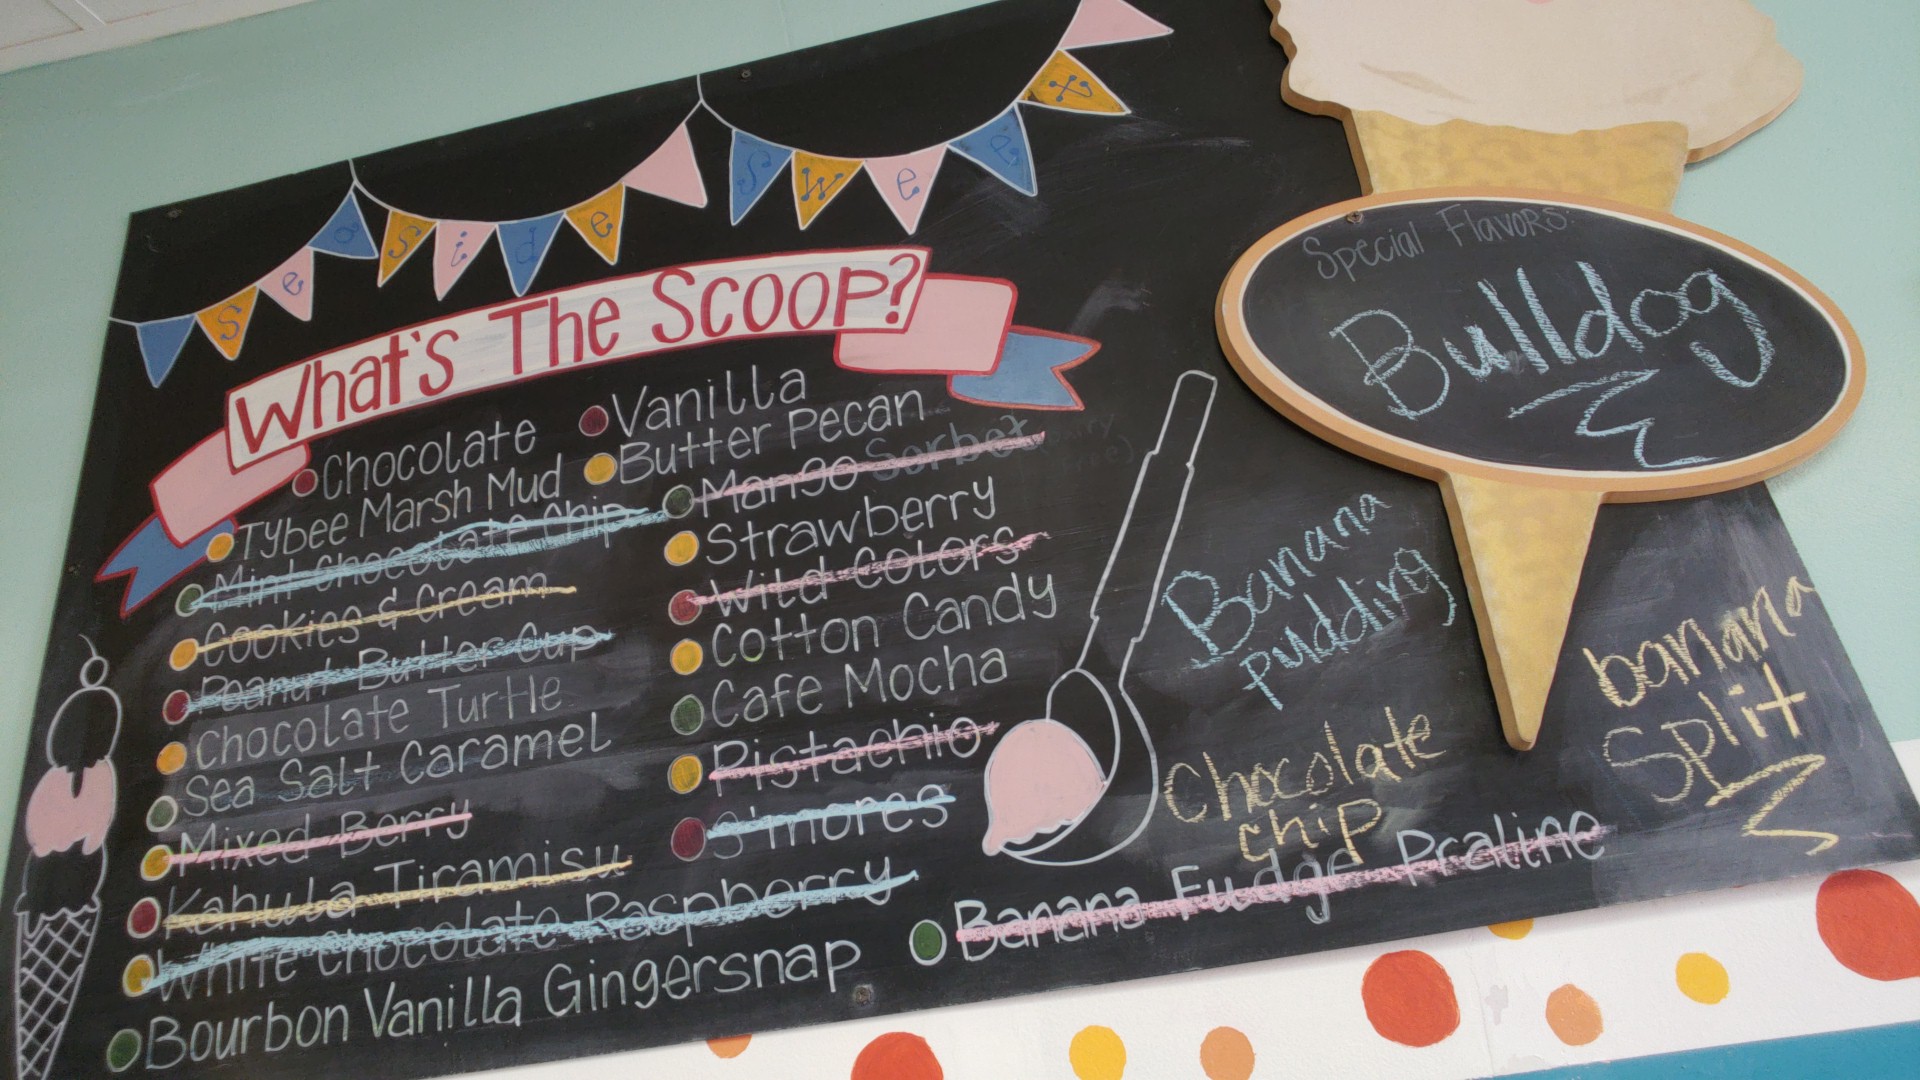 seaside sweets
What's The Scoop?
Chocolate
Tybee Marsh Mud
Mint Chocolate Chip
Cookies & Cream
Peanut Butter Cup
Chocolate Turtle
Sea Salt Caramel
Mixed Berry
Kahula Tiramisu
White Chocolate Raspberry
Bourbon Vanilla Gingersnap
Vanilla
Butter Pecan
Mango Sorbet
Strawberry
Wild Colors
Cotton Candy
Cafe Mocha
Pistachio
S'mores
Banana Fudge Praline
Special Flavors:
Bulldog
Banana
pudding
Chocolate
chip
banana
split